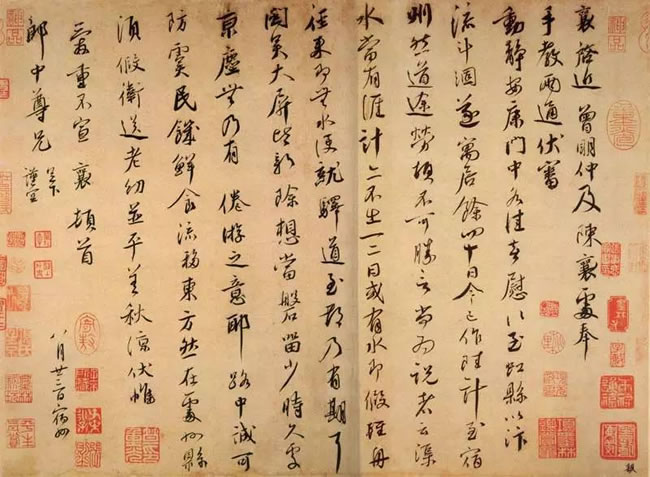 襄啓近曾明仲及陳襄處奉
手教兩通伏審
動靜安康門中各佳喜慰至虹縣以汴
流斗涸遂寓居餘四十日今已作陸計至宿
州然道途勞頓不可勝言尚為說者云渠
水當有涯計亦不出一二日或有水即假輕舟
徑來即無水便就驛道至都乃有期耳
聞美大屏皆新除想當磐留少時久處
京塵無乃有倦游之意耶路中誠可
防虞民饑鮮食流移東方然在處州縣
須假衛送老幼並平善秋涼伏惟
愛重不宣 襄 頓首
郎中尊兄
足下
謹空
八月廿三日宿州